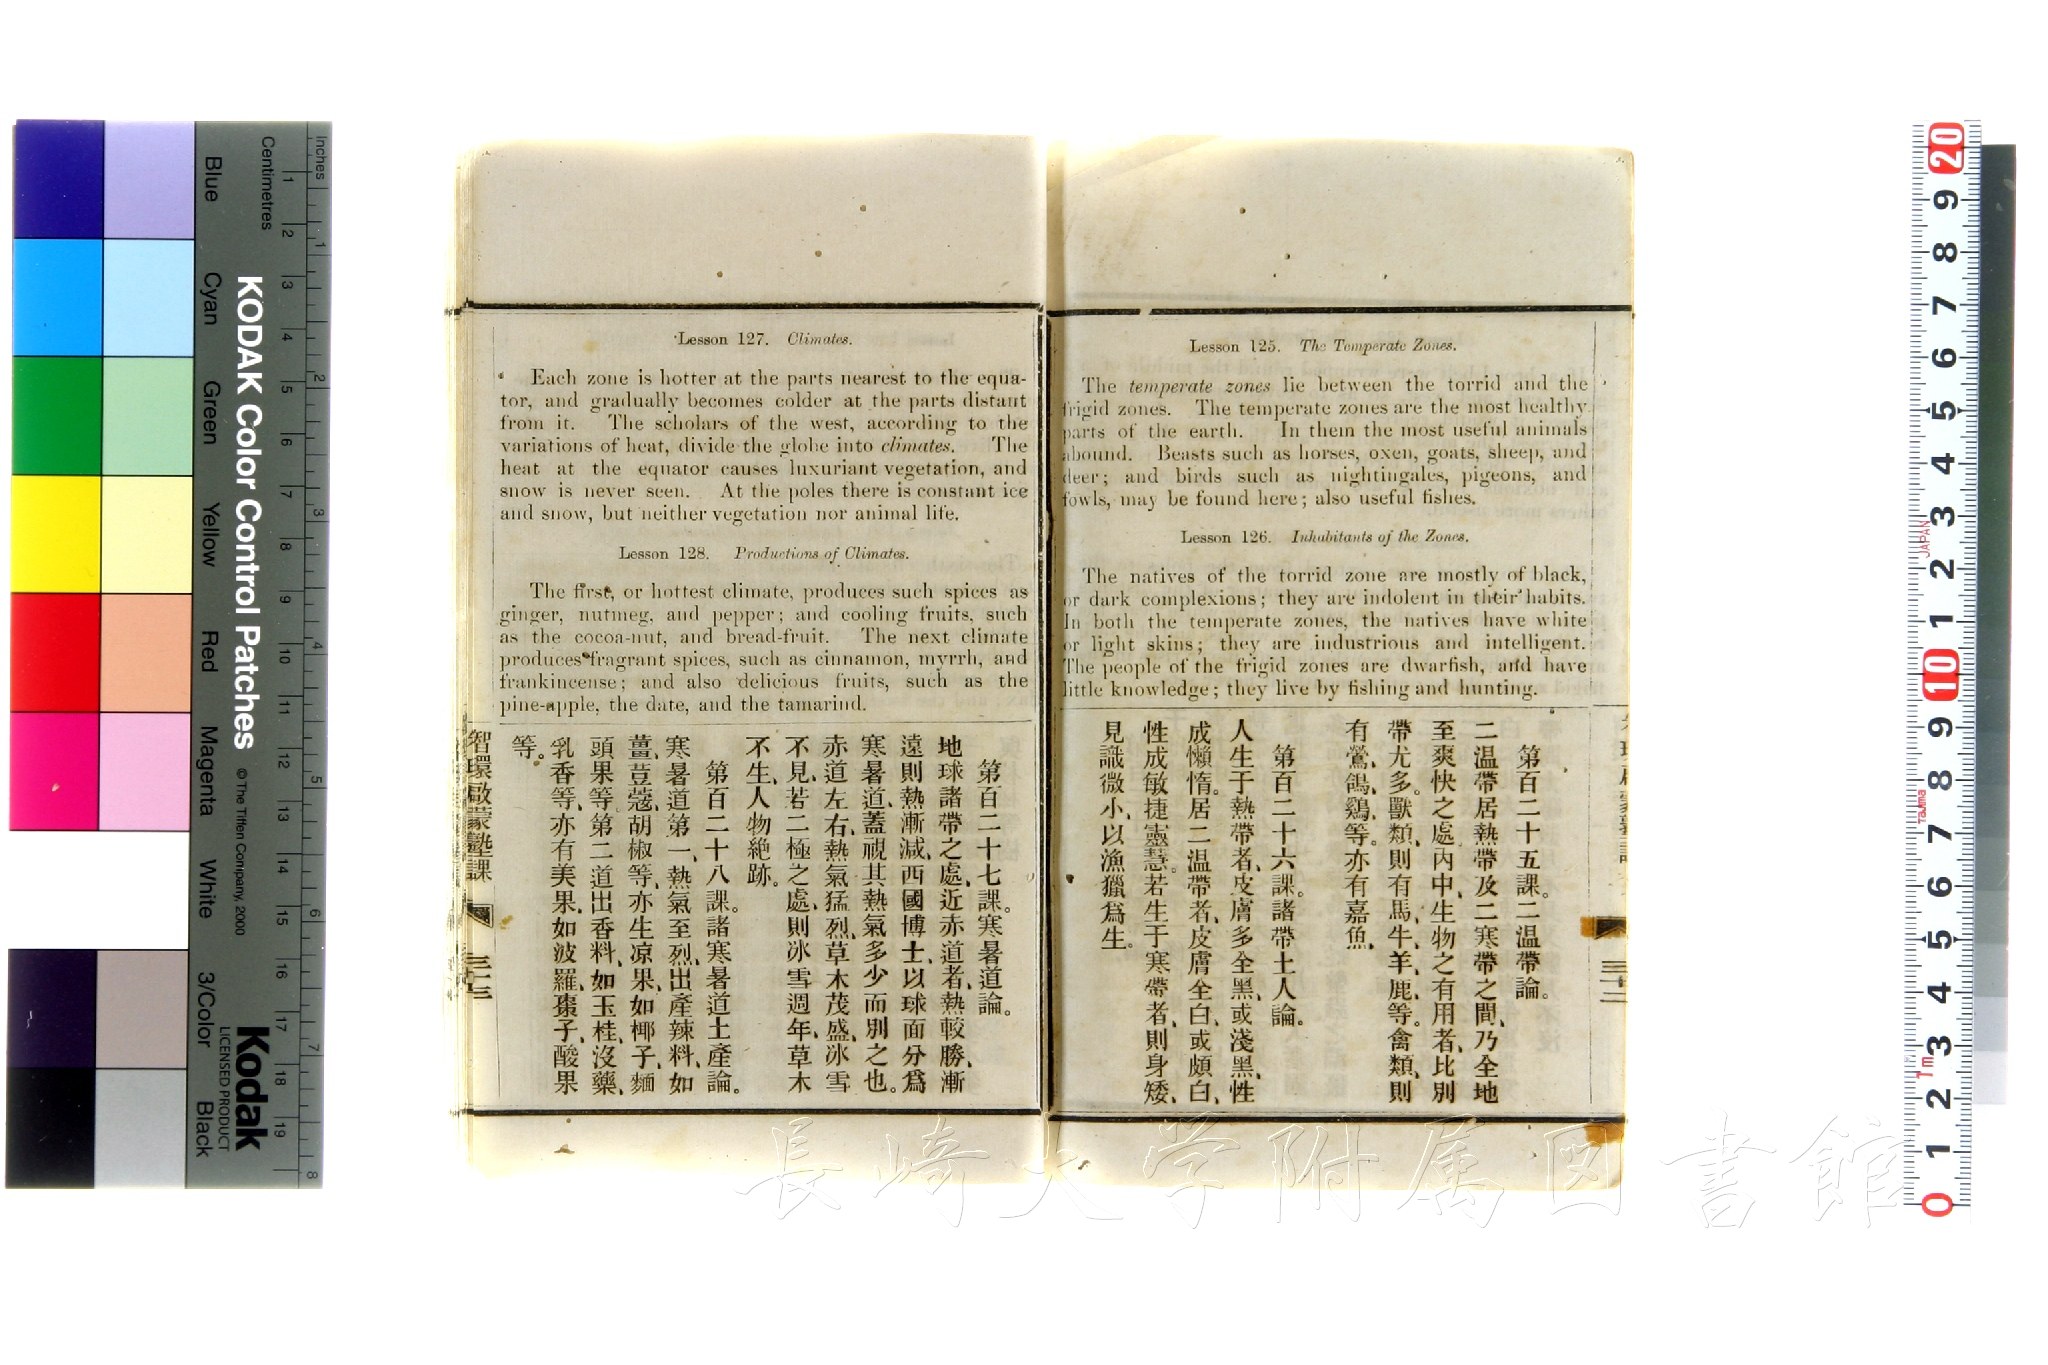 Lesson 125. The Temperate Zones.
The temperate zones lie between the torrid and the
frigid zones. The temperate zones are the most healthy
parts of the earth. In them the most useful animals
abound. Beasts such as horses, oxen, goats, sheep, and
deer; and birds such as nightingales, pigeons, and
fowls, may be found here; also useful fishes.
Lesson 126. Inhabitants of the Zones.
The natives of the torrid zone are mostly of black,
or dark complexions; they are indolent in their habits.
In both the temperate zones, the natives have white
or light skins; they are industrious and intelligent.
The people of the frigid zones are dwarfish, and have
little knowledge; they live by fishing and hunting.
第百二十五課。二温帶論。
二温帶居熱帶及二寒帶之間、乃全地
至爽快之處、內中、生物之有用者、比別
帶尤多。獸類、則有馬、牛、羊、鹿、等。禽類、則
有鶯、鴿、鷄、等。亦有嘉魚、
第百二十六課。諸帶土人論。
人生于熱帶者、皮膚多全黑、或淺黑、性
成懶惰。居二温帶者、皮膚全白、或頗白、
性成敏捷靈慧。若生于寒帶者、則身矮、
見識微小、以漁獵爲生。
三十二
Lesson 127. Climates.
Each zone is hotter at the parts nearest to the equa-
tor, and gradually becomes colder at the parts distant
from it. The scholars of the west, according to the
variations of heat, divide the globe into climates. The
heat at the equator causes luxuriant vegetation, and
snow is never seen. At the poles there is constant ice
and snow, but neither vegetation nor animal life.
Lesson 128. Productions of Climates.
The first, or hottest climate, produces such spices as
ginger, nutmeg, and pepper; and cooling fruits, such
as the cocoa-nut, and bread-fruit. The next climate
produces fragrant spices, such as cinnamon, myrrh, and
frankincense; and also delicious fruits, such as the
pine-apple, the date, and the tamarind.
第百二十七課。寒暑道論。
地球諸帶之處、近赤道者、熱較勝、漸
遠則熱漸減、西國博士、以球面分爲
寒暑道、蓋視其熱氣多少而別之也。
赤道左右、熱氣猛烈、草木茂盛、冰雪
不見、若二極之處、則冰雪週年、草木
不生、人物絶跡。
第百二十八課。諸寒暑道土產論。
寒暑道第一、熱氣至烈、出產辣料、如
薑、荳蔻、胡椒等、亦生凉果、如椰子、麵
頭果等、第二道出香料、如玉桂、沒藥、
乳香等、亦有美果、如波羅、棗子、酸果
等。
智環啟蒙塾課
三十三
KODAK Color Control Patches
© The Tiffen Company, 2000
Kodak
LICENSED PRODUCT
Inches
1
2
3
4
5
6
7
8
Centimetres
1
2
3
4
5
6
7
8
9
10
11
12
13
14
15
16
17
18
19
Blue
Cyan
Green
Yellow
Red
Magenta
White
3/Color
Black
20
9
8
7
6
5
4
3
2
1
10
9
8
7
6
5
4
3
2
1
0
JAPAN
Tajima
1m
長崎大学附属図書館